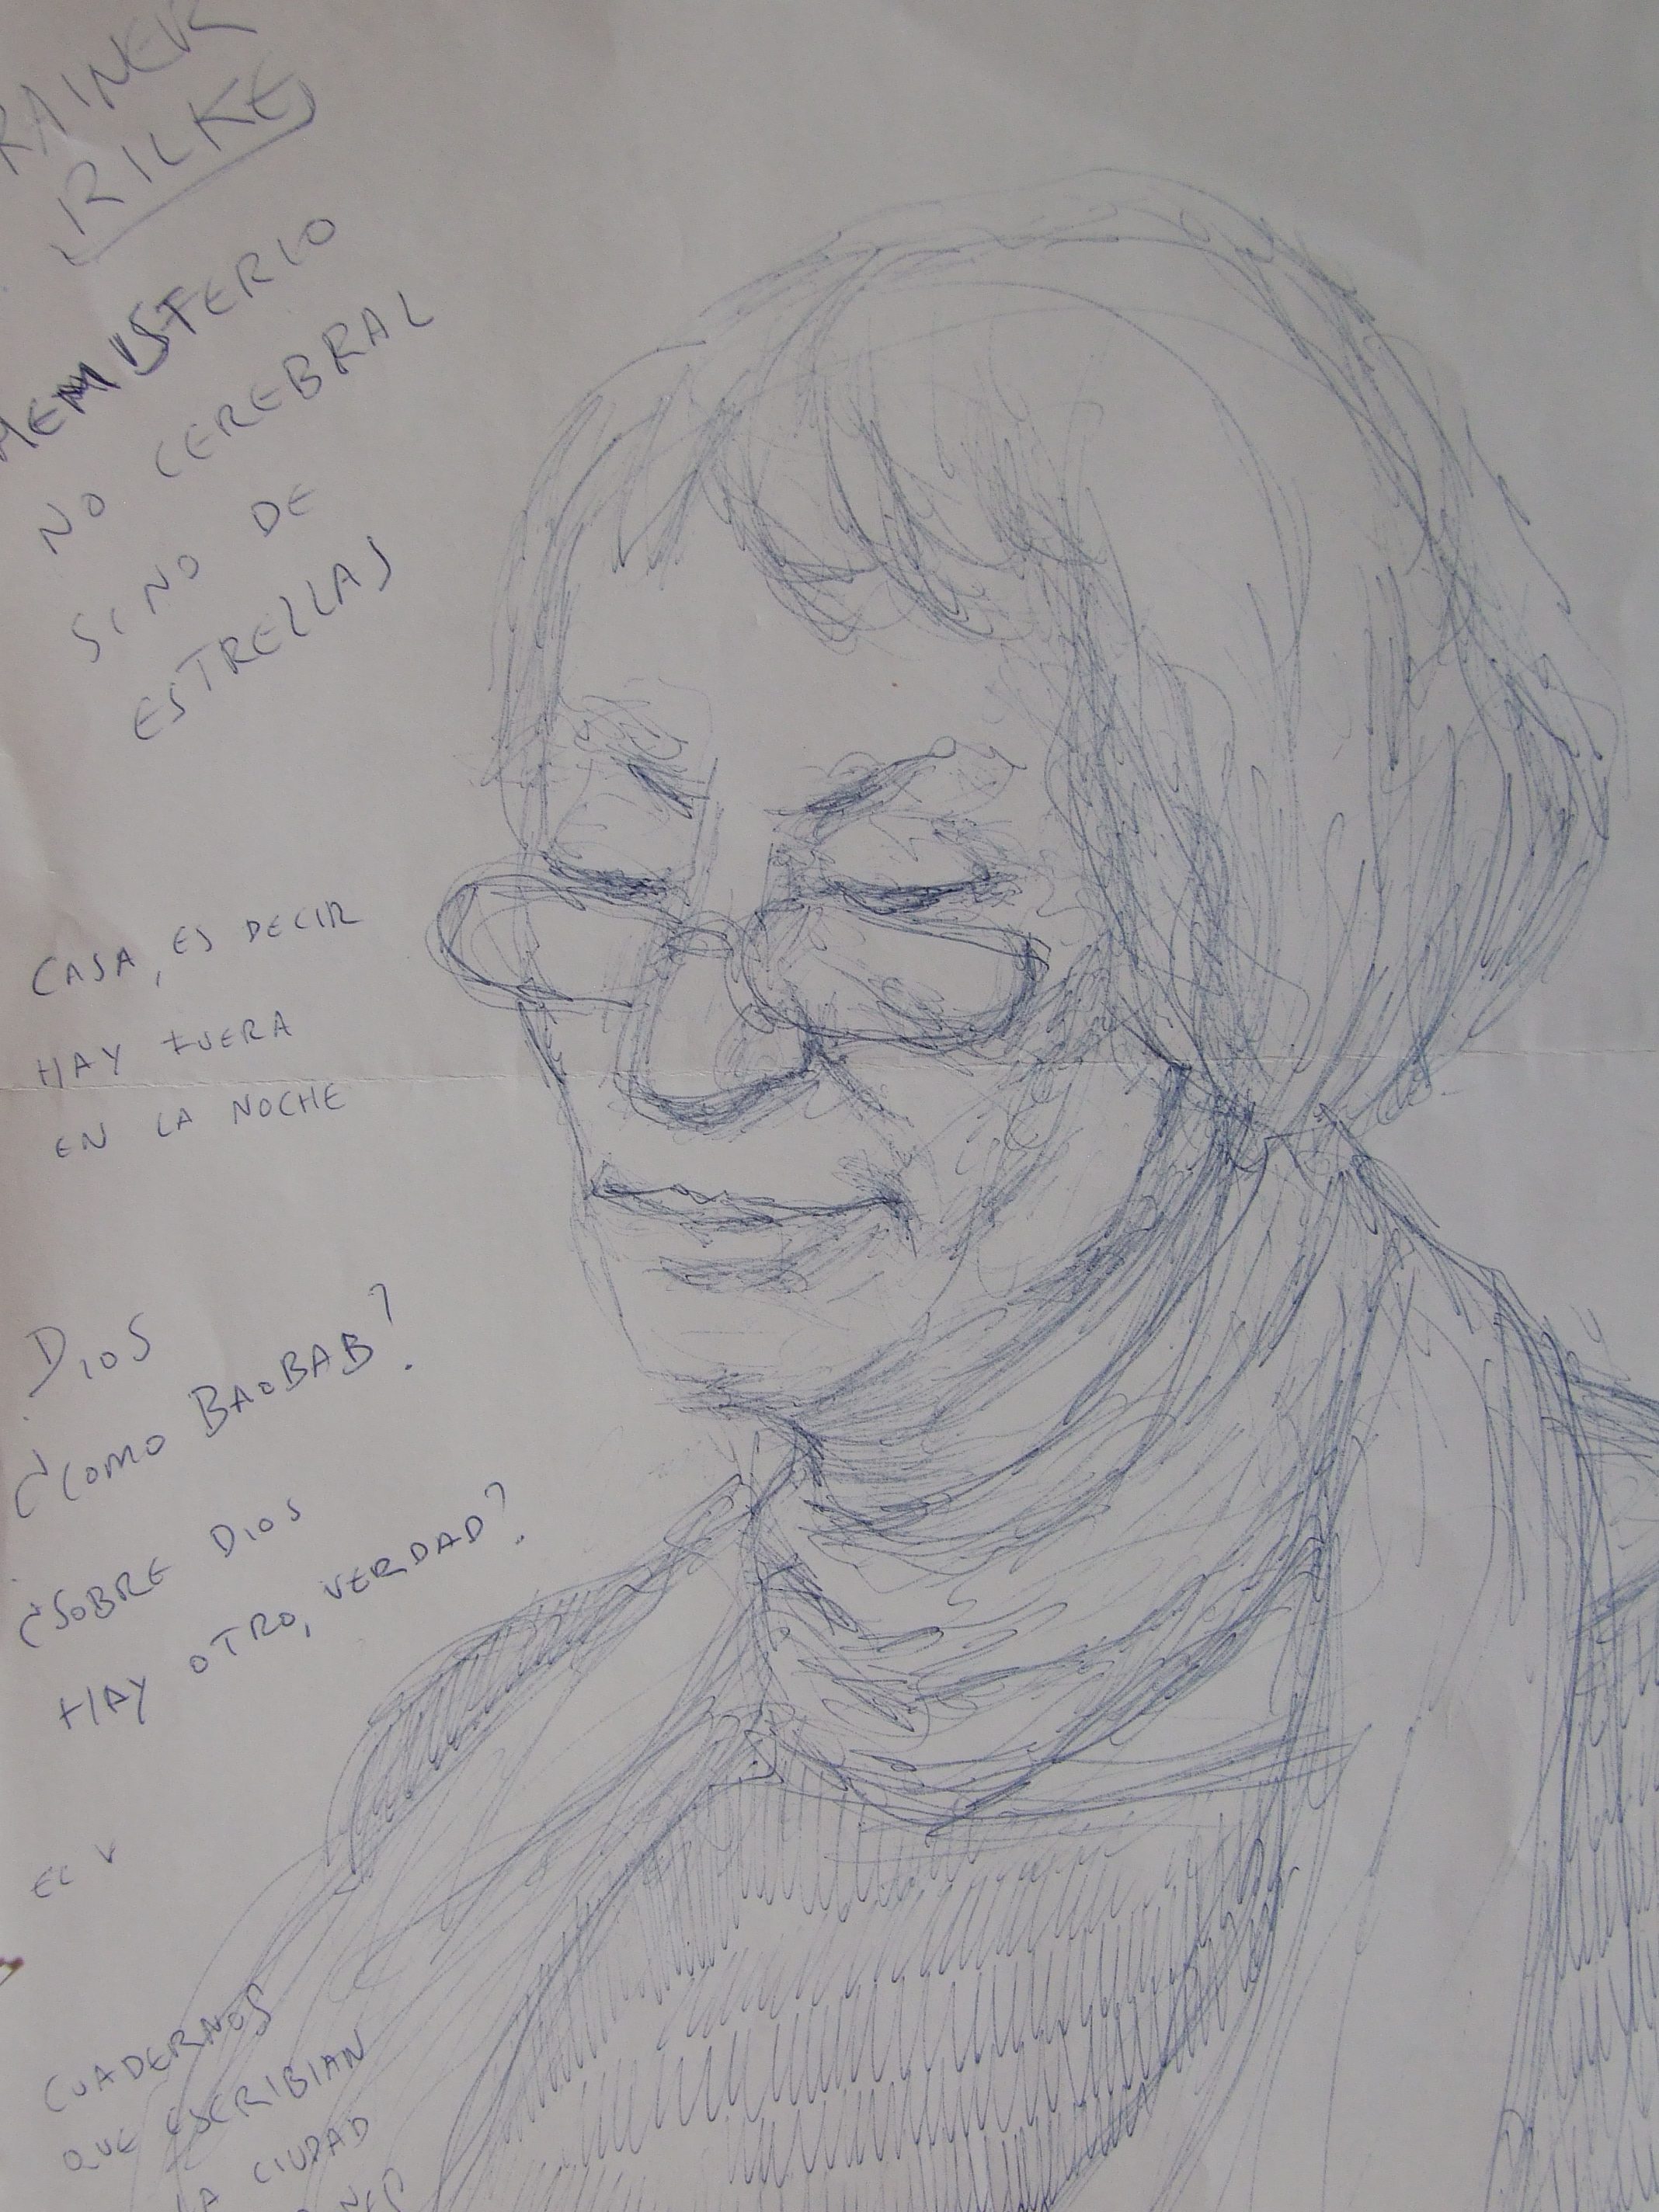 RAINER
RILKE
HEMISFERIO
NO CEREBRAL
SINO DE
ESTRELLAS
CASA, ES DECIR
HAY FUERA
EN LA NOCHE
DIOS
¿COMO BAOBAB?
¿SOBRE DIOS
HAY OTRO, VERDAD?
EL V
CUADERNOS
QUE ESCRIBIAN
LA CIUDAD